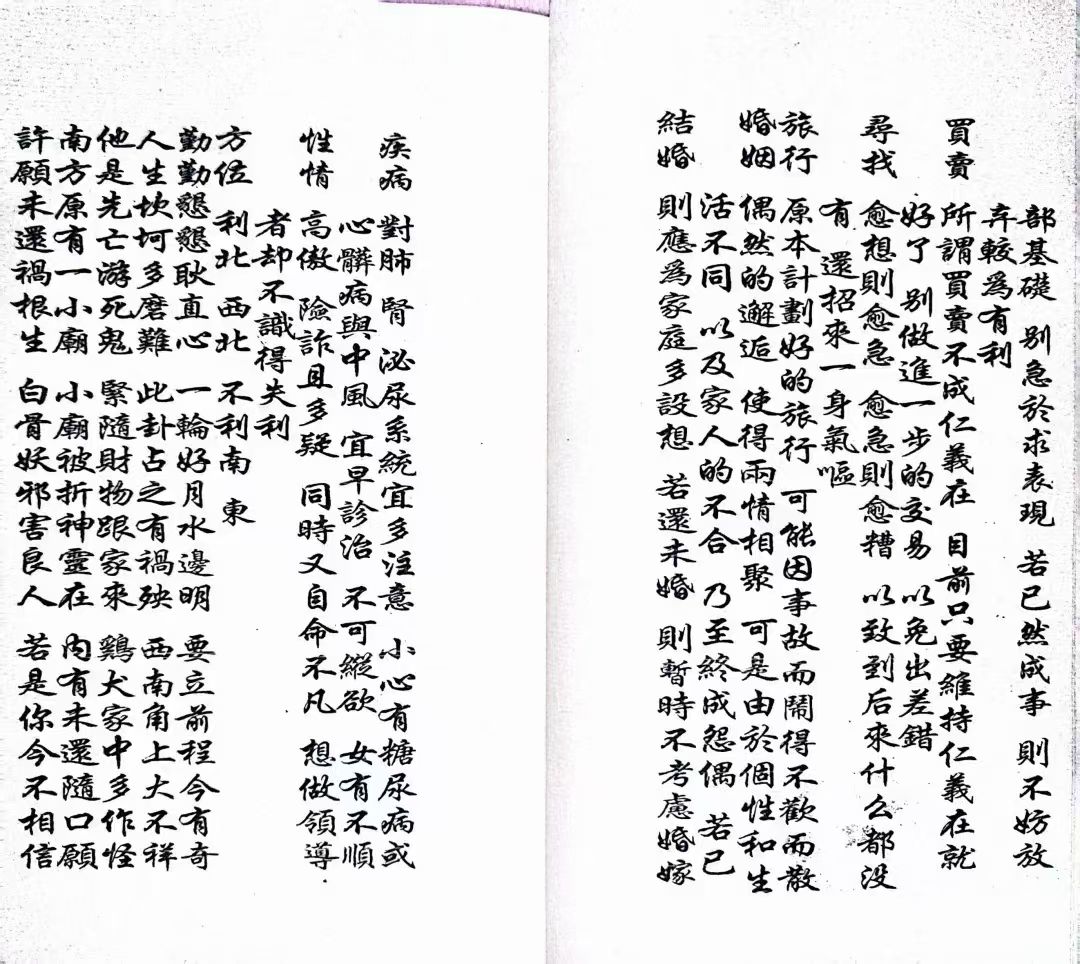 部基礎 别急於求表現 若已然成事 則不妨放
弃較爲有利
買賣 所謂買賣不成仁義在 目前只要維持仁義在就
好了 别做進一步的交易 以免出差錯
尋找 愈想則愈急 愈急則愈糟 以致到后來什么都没
有 還招來一身氣嘔
旅行 原本計劃好的旅行 可能因事故而鬧得不歡而散
婚姻 偶然的邂逅 使得兩情相聚 可是由於個性和生
活不同 以及家人的不合 乃至終成怨偶 若已
結婚 則應爲家庭多設想 若還未婚 則暫時不考慮婚嫁
疾病 對肺 腎 泌尿系統宜多注意 小心有糖尿病或
心髒病與中風 宜早診治 不可縱欲 女有不順
性情 高傲 險詐且多疑 同時又自命不凡 想做領導
者却不識得失利
方位 利北 西北 不利南 東
勤勤懇懇耿直心 一輪好月水邊明 要立前程今有奇
人生坎坷多磨難 此卦占之有禍殃 西南角上大不祥
他是先亡游死鬼 緊隨財物跟家來 鷄犬家中多作怪
南方原有一小廟 小廟被折神靈在 内有未還隨口願
許願未還禍根生 白骨妖邪害良人 若是你今不相信